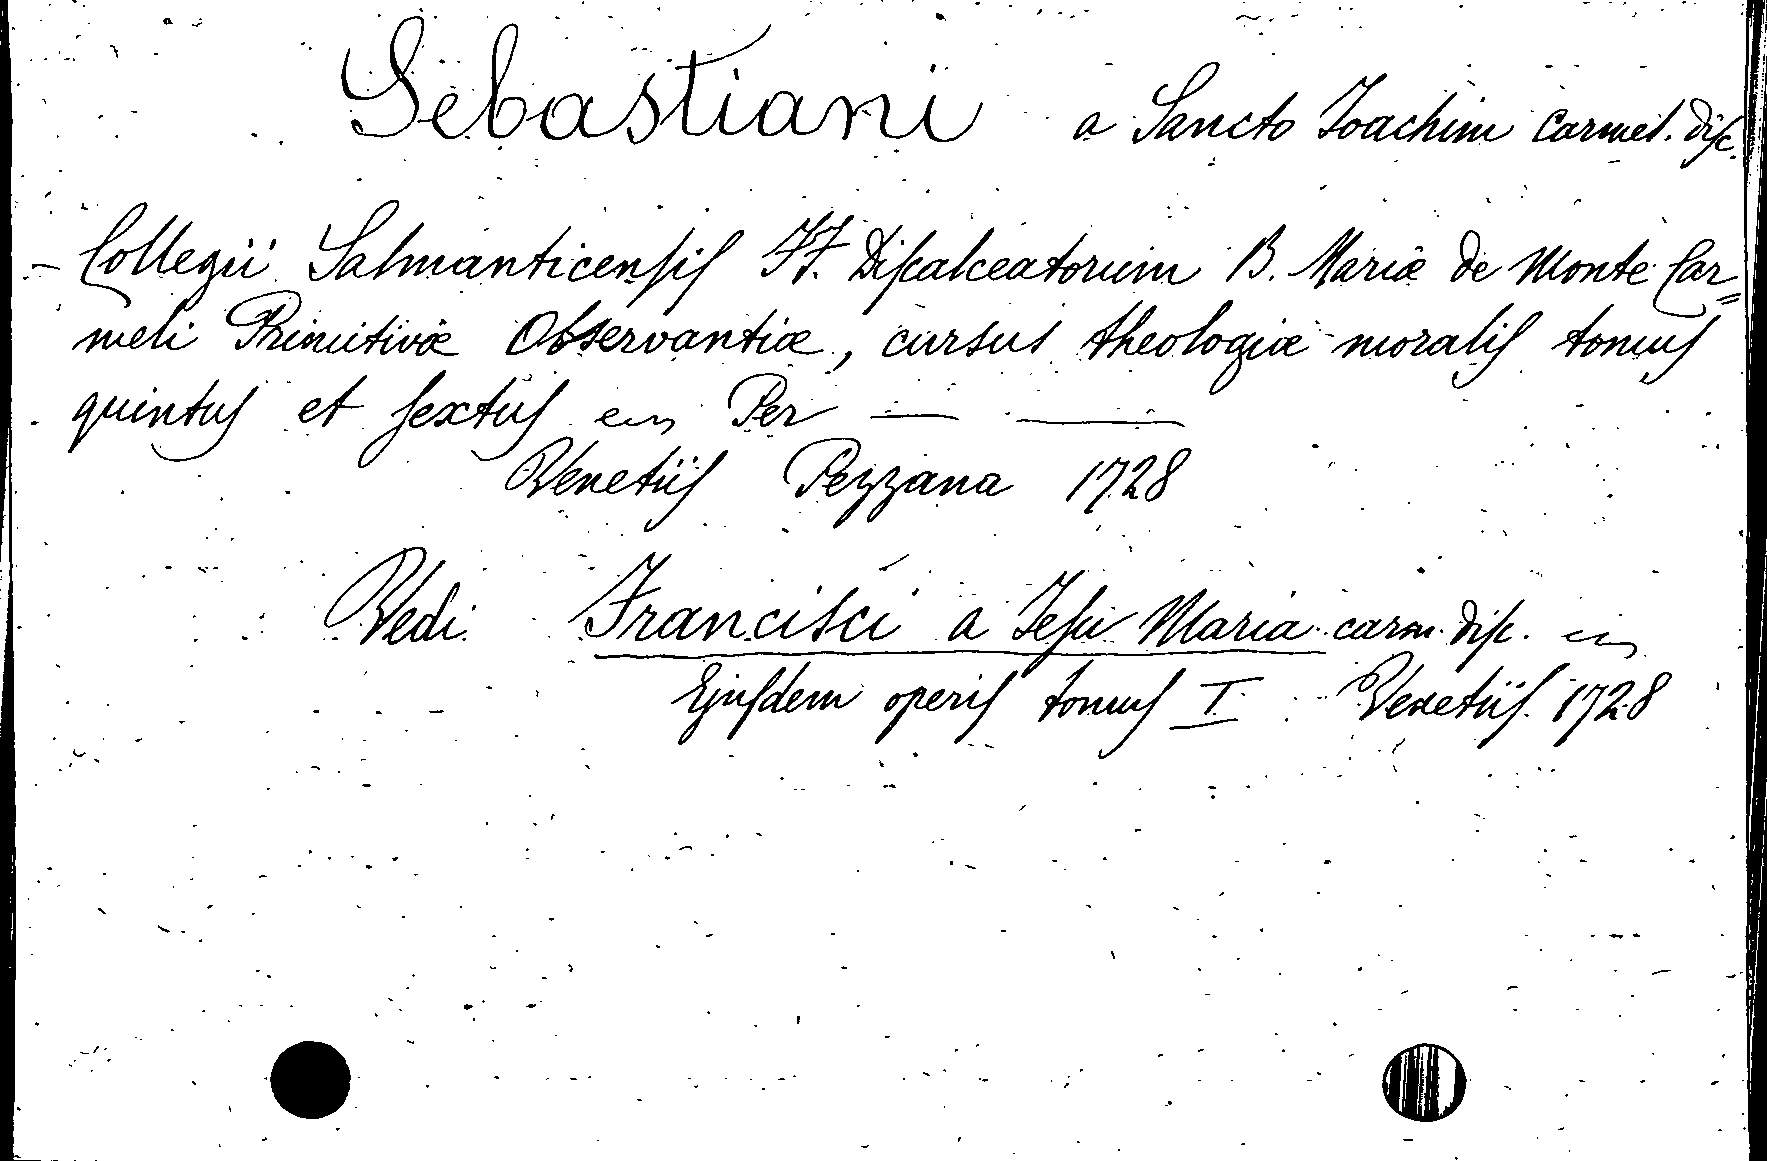 Sebastiani a Sancto Ioachim Carmel. Disc.
- Collegii Salmanticensis FF. Discalceatorum B. Mariæ de Monte Car=
meli Primitivæ Observantiæ, cursus theologiæ moralis tomus
quintus et sextus Per —— ——
Venetiis Pezzana 1728
Vedi Francisci a Iesu Maria carm. disc. in
Ejusdem operis tomus I Venetiis 1728